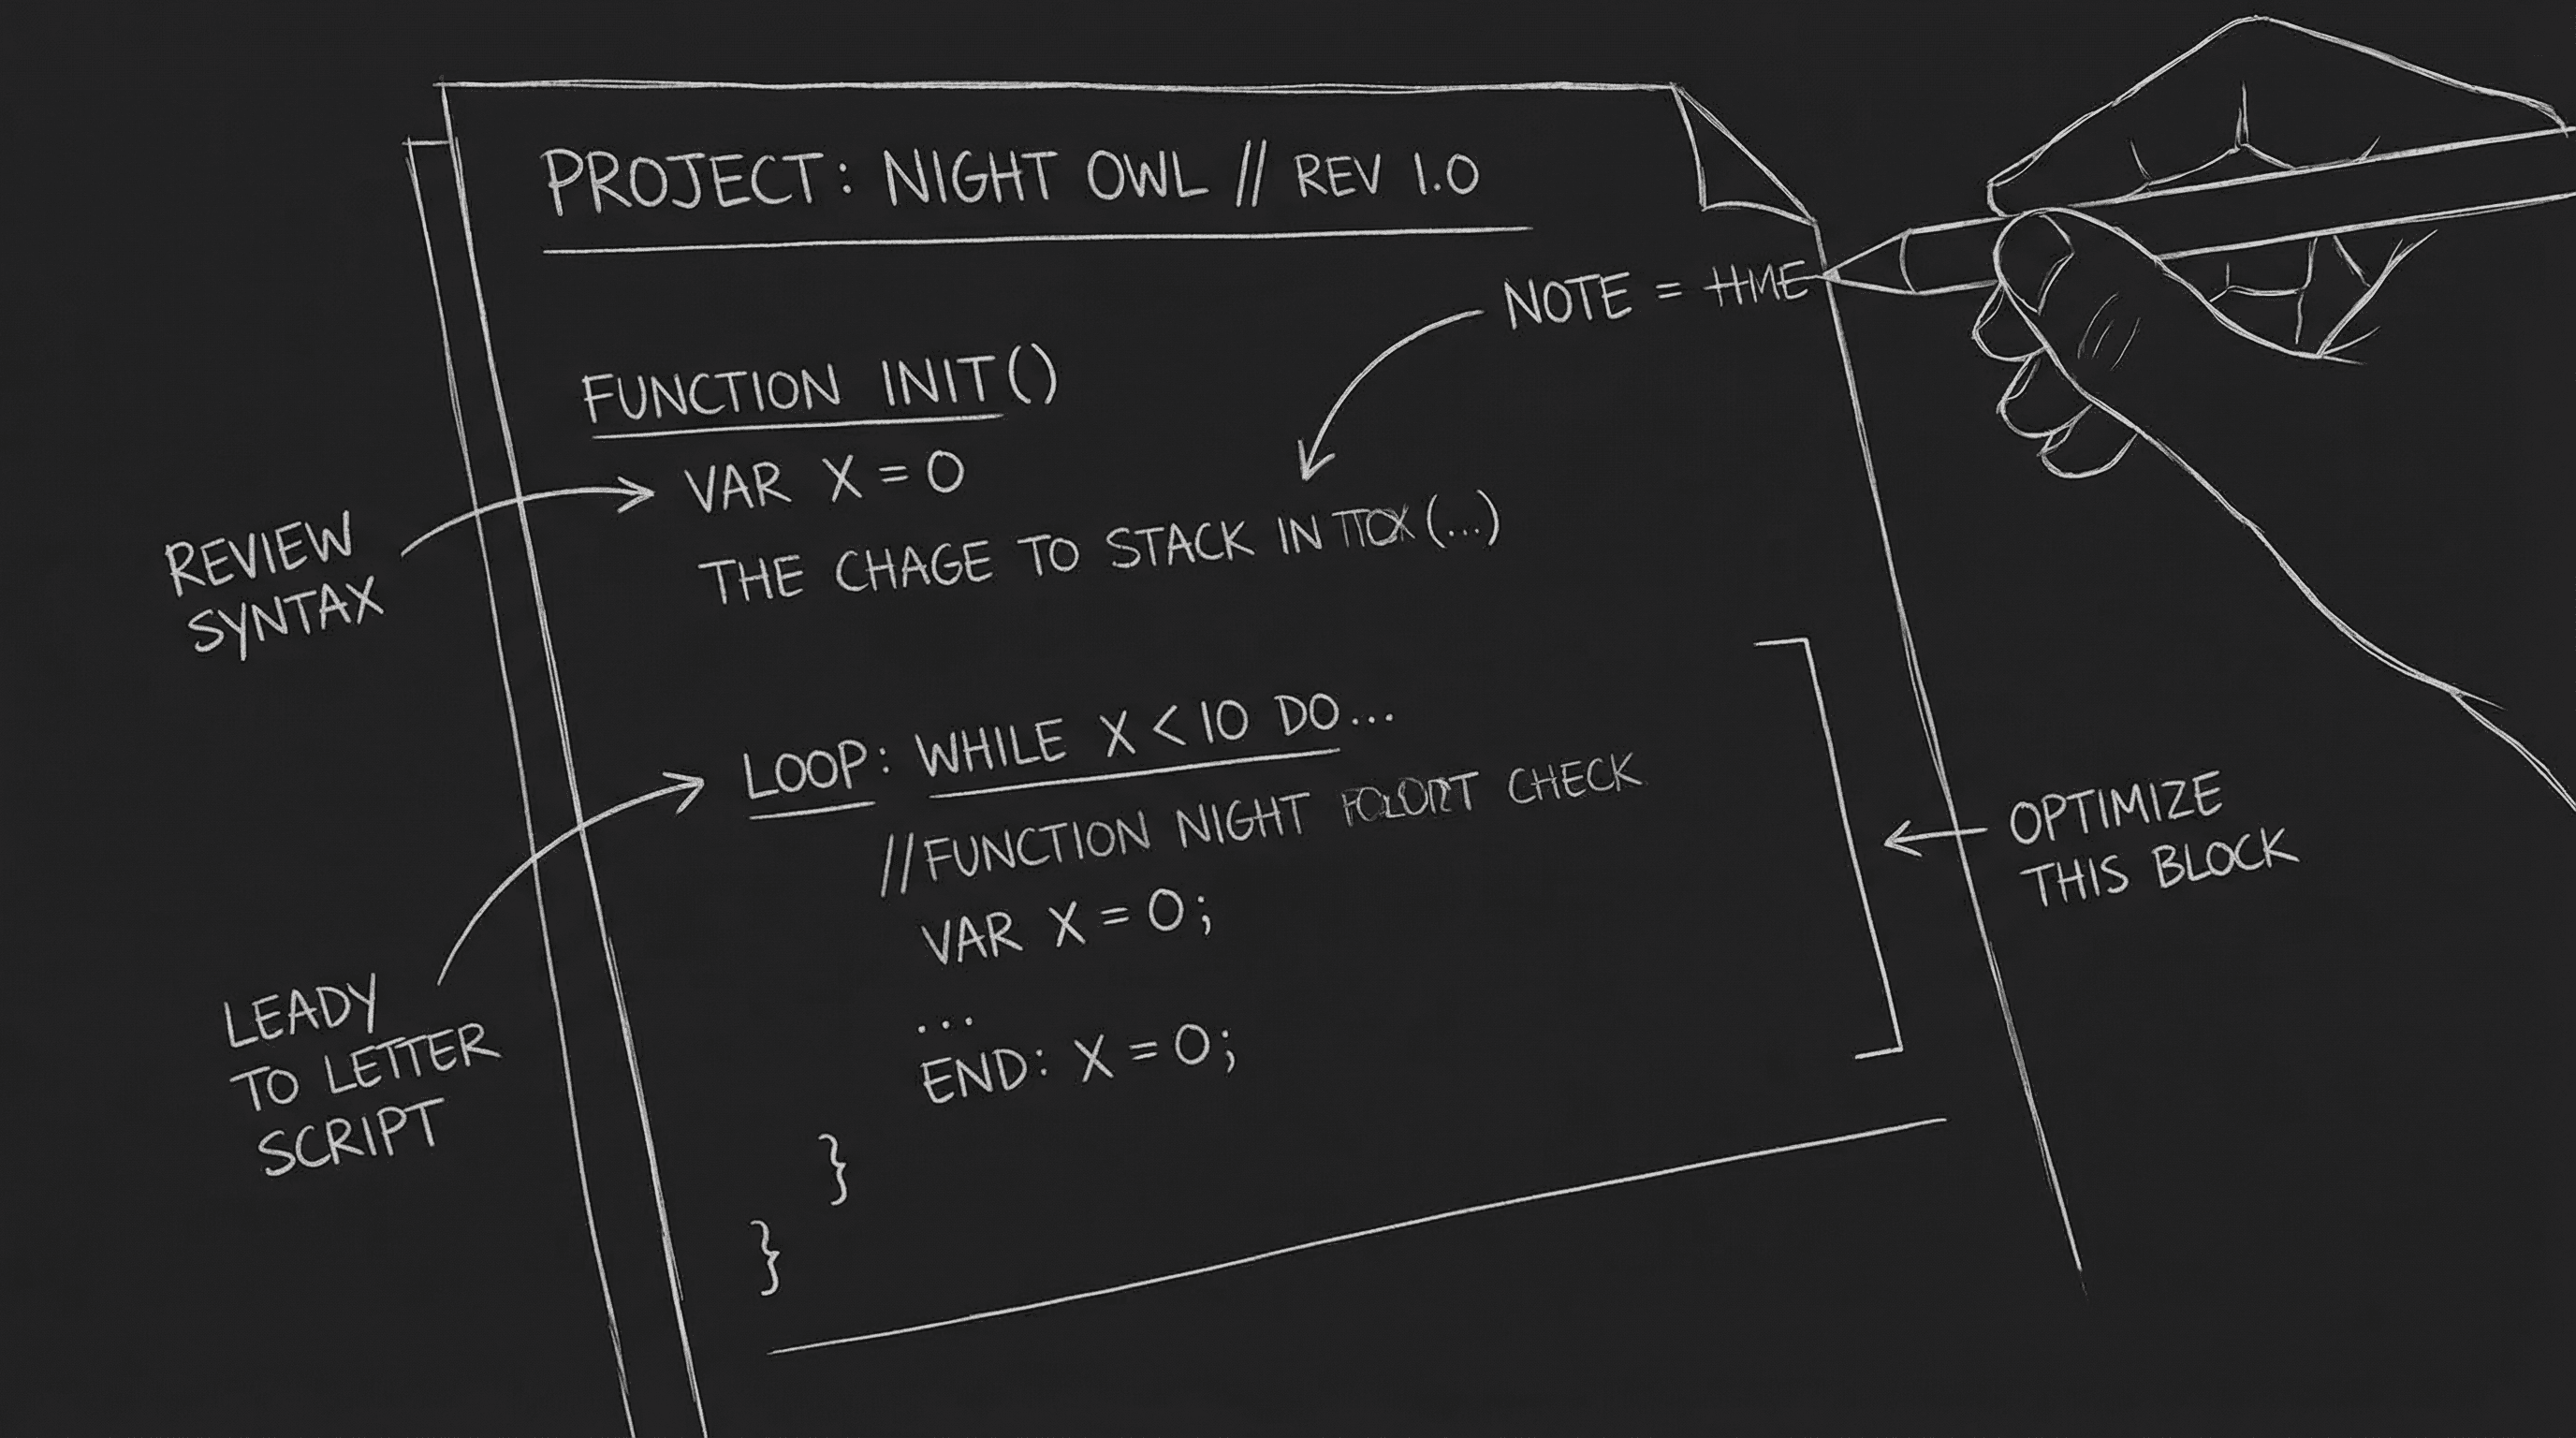 PROJECT: NIGHT OWL // REV 1.0
NOTE =
FUNCTION INIT()
VAR X = 0
THE CHAGE TO STACK IN (...)
REVIEW
SYNTAX
LOOP: WHILE X < 10 DO...
//FUNCTION NIGHT CHECK
VAR X = 0;
...
END: X = 0;
}
}
OPTIMIZE
THIS BLOCK
LEADY
TO LETTER
SCRIPT